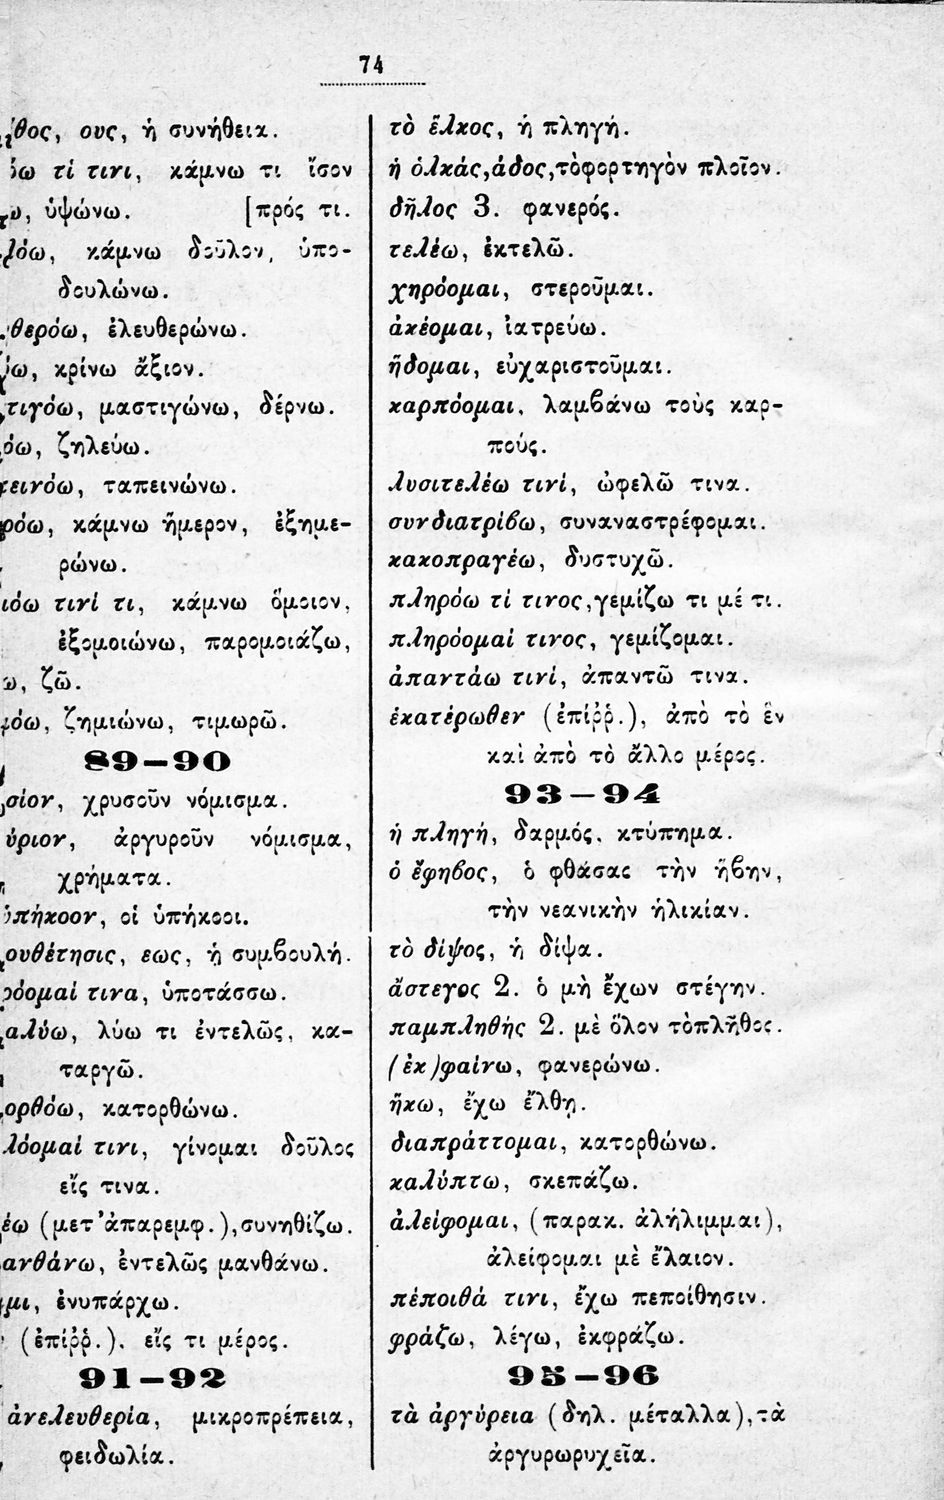 74
ους, ἡ συνήθεια.
τί τινι, κάμνω τι ἴσον
ὑψώνω. [πρός τι.
κάμνω δοῦλον, ὑπο-
δουλώνω.
ἐλευθερώνω.
κρίνω ἄξιον.
μαστιγώνω, δέρνω.
ζηλεύω.
ταπεινώνω.
κάμνω ἥμερον, ἐξημε-
ρώνω.
τινί τι, κάμνω ὅμοιον,
ἐξομοιώνω, παρομοιάζω,
ζῶ.
ζημιώνω, τιμωρῶ.
89—90
χρυσοῦν νόμισμα.
ἀργυροῦν νόμισμα,
χρήματα.
οἱ ὑπήκοοι.
εως, ἡ συμβουλή.
τινα, ὑποτάσσω.
λύω τι ἐντελῶς, κα-
ταργῶ.
κατορθώνω.
τινι, γίνομαι δοῦλος
εἴς τινα.
(μετ' ἀπαρεμφ.), συνηθίζω.
ἐντελῶς μανθάνω.
ἐνυπάρχω.
(ἐπίῤῥ.), εἴς τι μέρος.
91—92
ἀνελευθερία, μικροπρέπεια,
φειδωλία.
τὸ ἕλκος, ἡ πληγή.
ἡ ὁλκάς, άδος, τὸ φορτηγὸν πλοῖον.
δῆλος 3. φανερός.
τελέω, ἐκτελῶ.
χηρόομαι, στεροῦμαι.
ἀκέομαι, ἰατρεύω.
ἥδομαι, εὐχαριστοῦμαι.
καρπόομαι, λαμβάνω τοὺς καρ-
πούς.
λυσιτελέω τινί, ὠφελῶ τινα.
συνδιατρίβω, συναναστρέφομαι.
κακοπραγέω, δυστυχῶ.
πληρόω τί τινος, γεμίζω τι μέ τι.
πληρόομαί τινος, γεμίζομαι.
ἀπαντάω τινί, ἀπαντῶ τινα.
ἑκατέρωθεν (ἐπίῤῥ.), ἀπὸ τὸ ἓν
καὶ ἀπὸ τὸ ἄλλο μέρος.
93—94
ἡ πληγή, δαρμός, κτύπημα.
ὁ ἔφηβος, ὁ φθάσας τὴν ἥβην,
τὴν νεανικὴν ἡλικίαν.
τὸ δίψος, ἡ δίψα.
ἄστεγος 2. ὁ μὴ ἔχων στέγην.
παμπληθής 2. μὲ ὅλον τὸ πλῆθος.
(ἐκ)φαίνω, φανερώνω.
ἥκω, ἔχω ἔλθῃ.
διαπράττομαι, κατορθώνω.
καλύπτω, σκεπάζω.
ἀλείφομαι, (παρακ. ἀλήλιμμαι),
ἀλείφομαι μὲ ἔλαιον.
πέποιθά τινι, ἔχω πεποίθησιν.
φράζω, λέγω, ἐκφράζω.
95—96
τὰ ἀργύρεια (δηλ. μέταλλα), τὰ
ἀργυρωρυχεῖα.